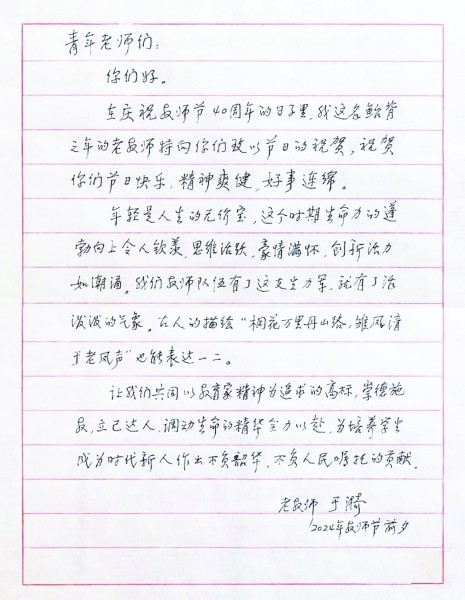 青年老师们：
你们好。
在庆祝教师节40周年的日子里，我这名鲐背
之年的老教师特向你们致以节日的祝贺，祝贺
你们节日快乐，精神爽健，好事连绵。
年轻是人生的无价宝，这个时期生命力的蓬
勃向上令人钦羡，思维活跃，豪情满怀，创新活力
如潮涌。我们教师队伍有了这支生力军，就有了活
泼泼的气象。古人的描绘“桐花万里丹山路，雏凤清
于老凤声”也能表达一二。
让我们共同以教育家精神为追求的高标，崇德施
教，立己达人，调动生命的精华全力以赴，为培养学生
成为时代新人作出不负韶华、不负人民嘱托的贡献。
老教师 于漪
2024年教师节前夕